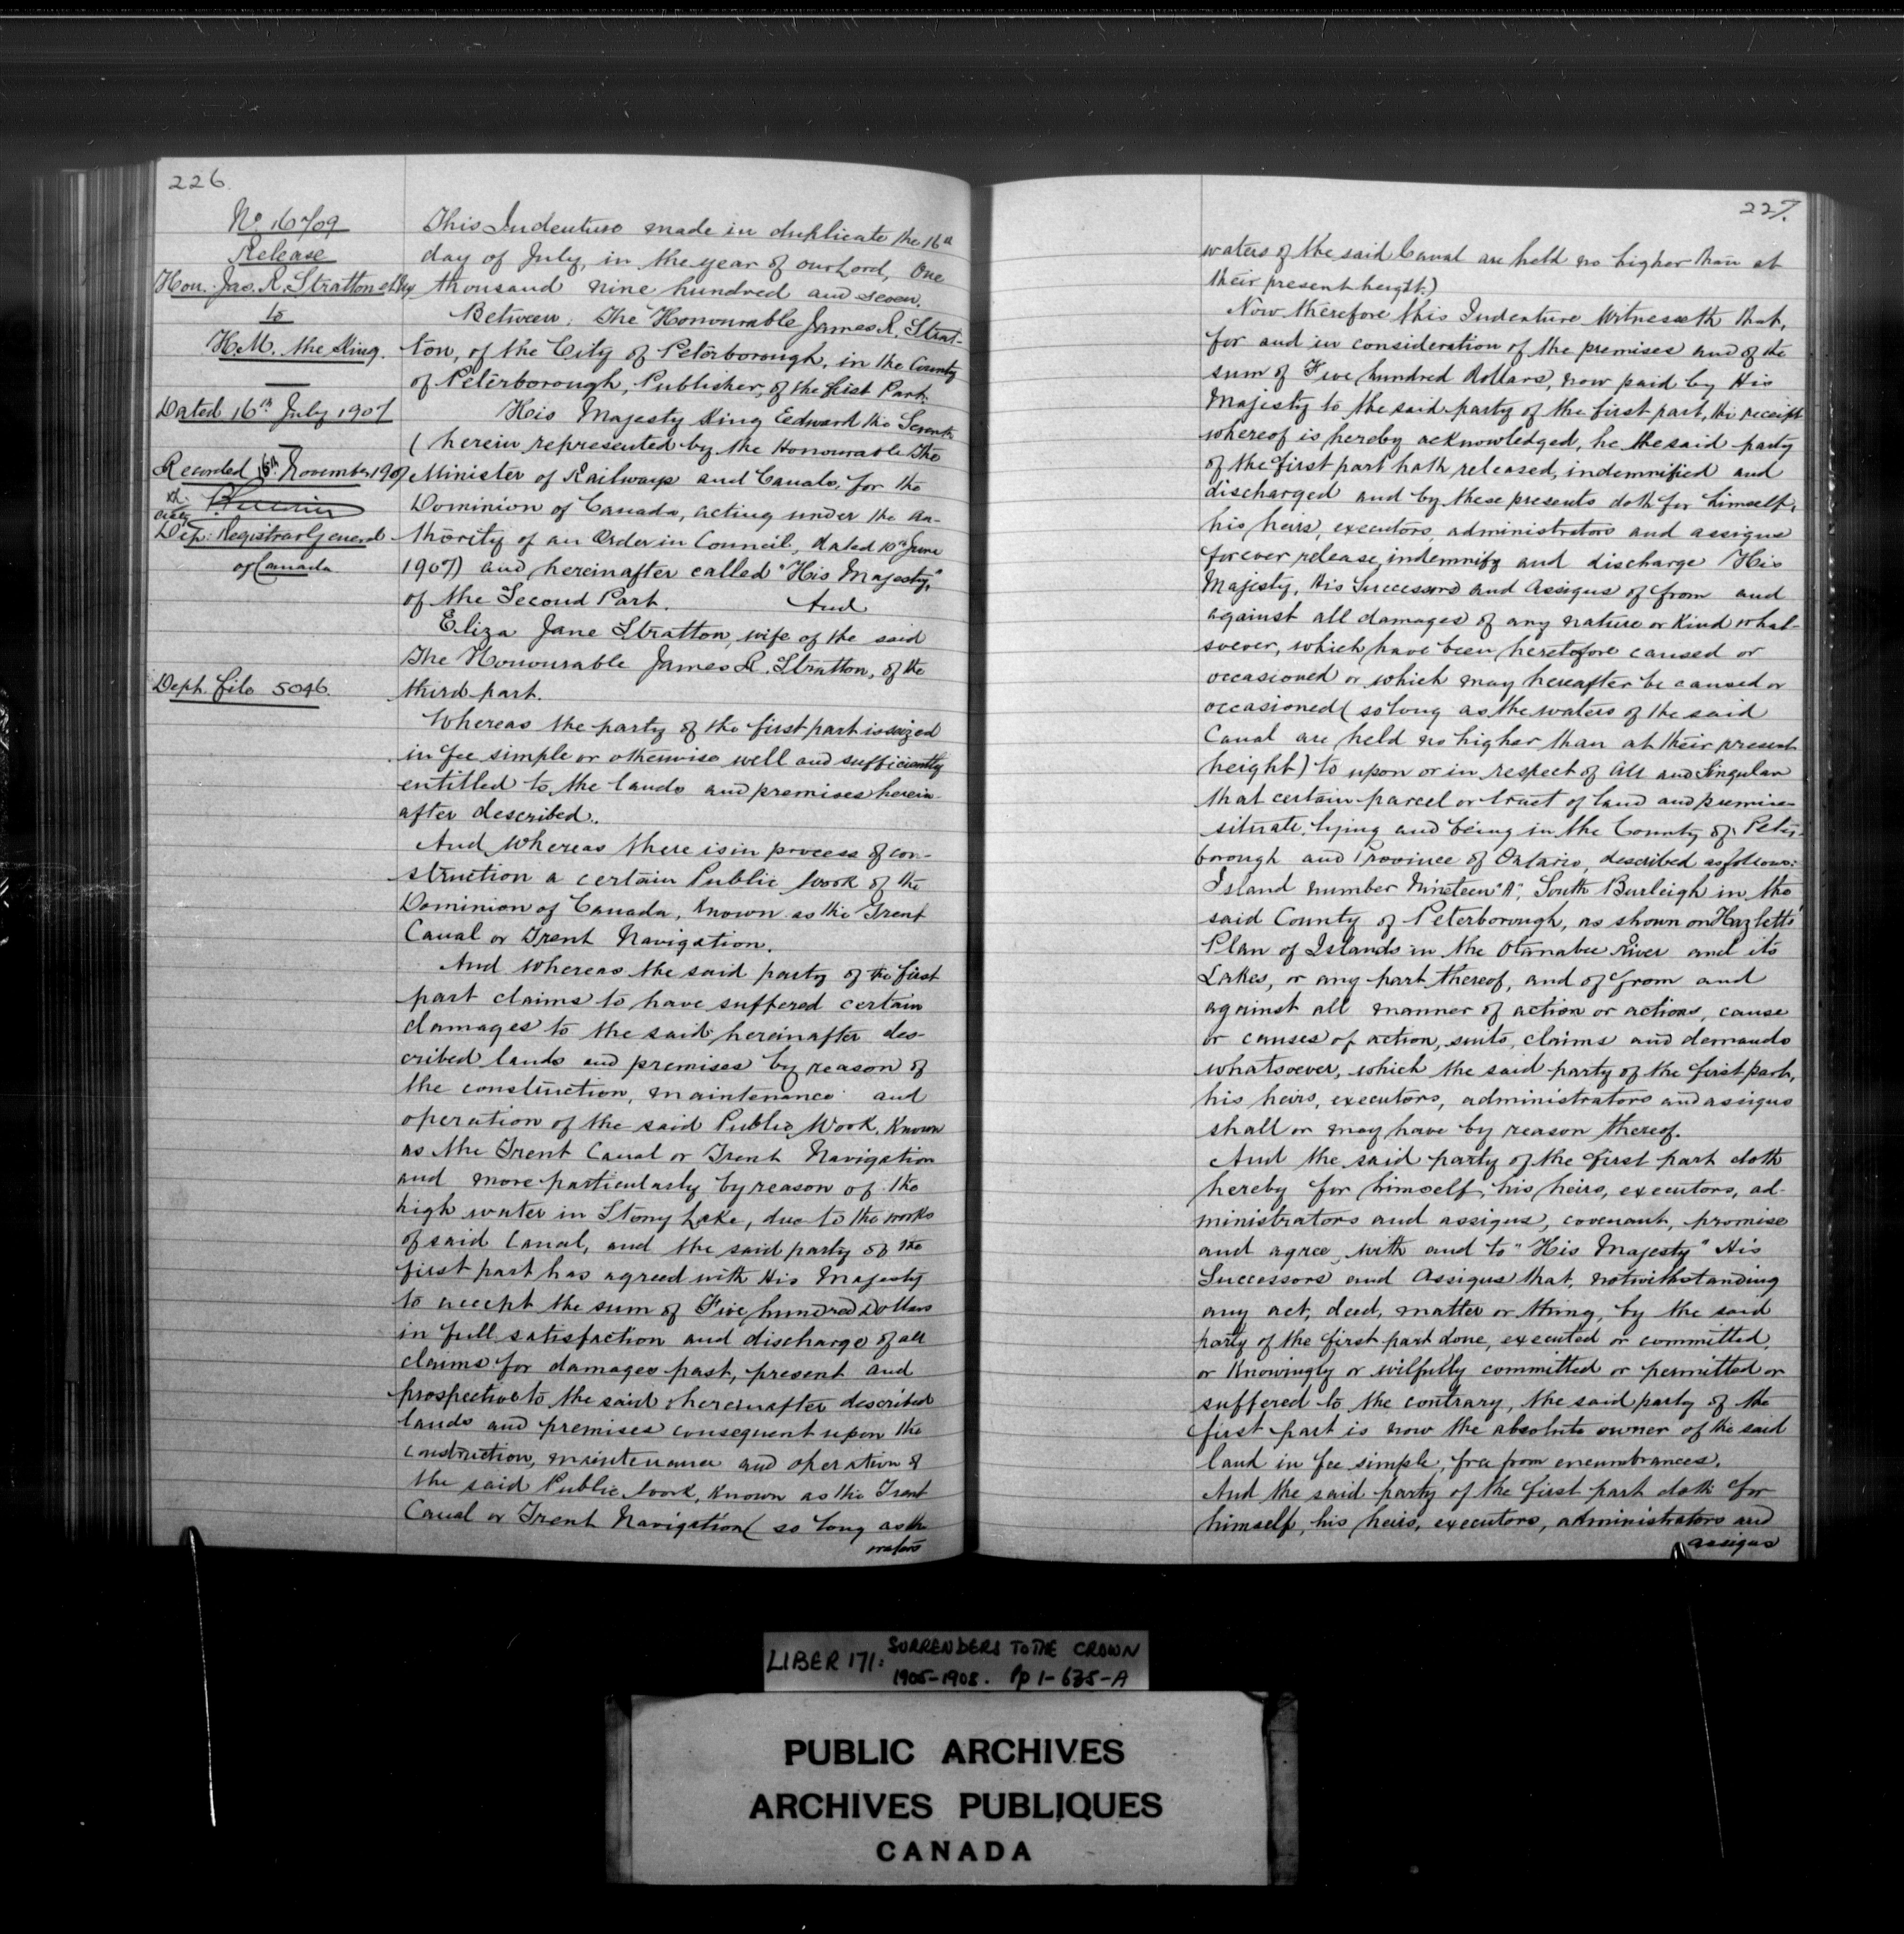 226
No 16709
Release
Hon. Jas. R. Stratton et ux
to
H.M. the King.
Dated 16th July 1907
Recorded 15th November 1907
Dep: Registrar General
of Canada
Dept. file 5046.
This Indenture made in duplicate the 16th
day of July, in the year of our Lord, One
thousand nine hundred and seven.
Between: The Honourable James R. Strat-
ton, of the City of Peterborough, in the County
of Peterborough, Publisher, of the First Part.
His Majesty King Edward the Seventh
(herein represented by the Honourable the
Minister of Railways and Canals, for the
Dominion of Canada, acting under the au-
thority of an Order in Council, dated 10th June
1907) and hereinafter called "His Majesty,"
of the Second Part. And
Eliza Jane Stratton, wife of the said
The Honourable James R. Stratton, of the
third part.
Whereas the party of the first part is seized
in fee simple or otherwise well and sufficiently
entitled to the lands and premises herein-
after described.
And Whereas there is in process of con-
struction a certain Public Work of the
Dominion of Canada, known as the Trent
Canal or Trent Navigation.
And whereas the said party of the first
part claims to have suffered certain
damages to the said hereinafter des-
cribed lands and premises by reason of
the construction, maintenance and
operation of the said Public Work, Known
as the Trent Canal or Trent Navigation
and more particularly by reason of the
high water in Stony Lake, due to the works
of said Canal, and the said party of the
first part has agreed with His Majesty
to accept the sum of Five hundred Dollars
in full satisfaction and discharge of all
claims for damages past, present and
prospective to the said hereinafter described
lands and premises consequent upon the
construction, maintenance and operation of
the said Public Work, Known as the Trent
Canal or Trent Navigation (so long as the
waters
227.
waters of the said Canal are held no higher than at
their present height.)
Now therefore this Indenture Witnesseth that,
for and in consideration of the premises and of the
sum of Five hundred Dollars, now paid by His
Majesty to the said party of the first part, the receipt
whereof is hereby acknowledged, he the said party
of the first part hath released, indemnified and
discharged and by these presents doth for himself,
his heirs, executors, administrators and assigns
forever release, indemnify and discharge His
Majesty, His Successors and Assigns of from and
against all damages of any nature or Kind what-
soever, which have been heretofore caused or
occasioned or which may hereafter be caused or
occasioned (so long as the waters of the said
Canal are held no higher than at their present
height) to upon or in respect of All and Singular
that certain parcel or tract of land and premises
situate, lying and being in the County of Peter-
borough and Province of Ontario, described as follows:
Island number Nineteen "A", South Burleigh in the
said County of Peterborough, as shown on Hazletts'
Plan of Islands in the Otanabee River and its
Lakes, or any part thereof, and of from and
against all manner of action or actions, cause
or causes of action, suits, claims and demands
whatsoever, which the said party of the first part,
his heirs, executors, administrators and assigns
shall or may have by reason thereof.
And the said party of the first part doth
hereby for himself, his heirs, executors, ad-
ministrators and assigns, covenant, promise
and agree, with and to "His Majesty" His
Successors and Assigns that, notwithstanding
any act, deed, matter or thing, by the said
party of the first part done, executed or committed,
or Knowingly or wilfully committed or permitted or
suffered to the contrary, the said party of the
first part is now the absolute owner of the said
land in fee simple, free from encumbrances.
And the said party of the first part doth for
himself, his heirs, executors, administrators and
assigns
LIBER 171: SURRENDERS TO THE CROWN
1905-1908. Pp 1-635-A
PUBLIC ARCHIVES
ARCHIVES PUBLIQUES
CANADA